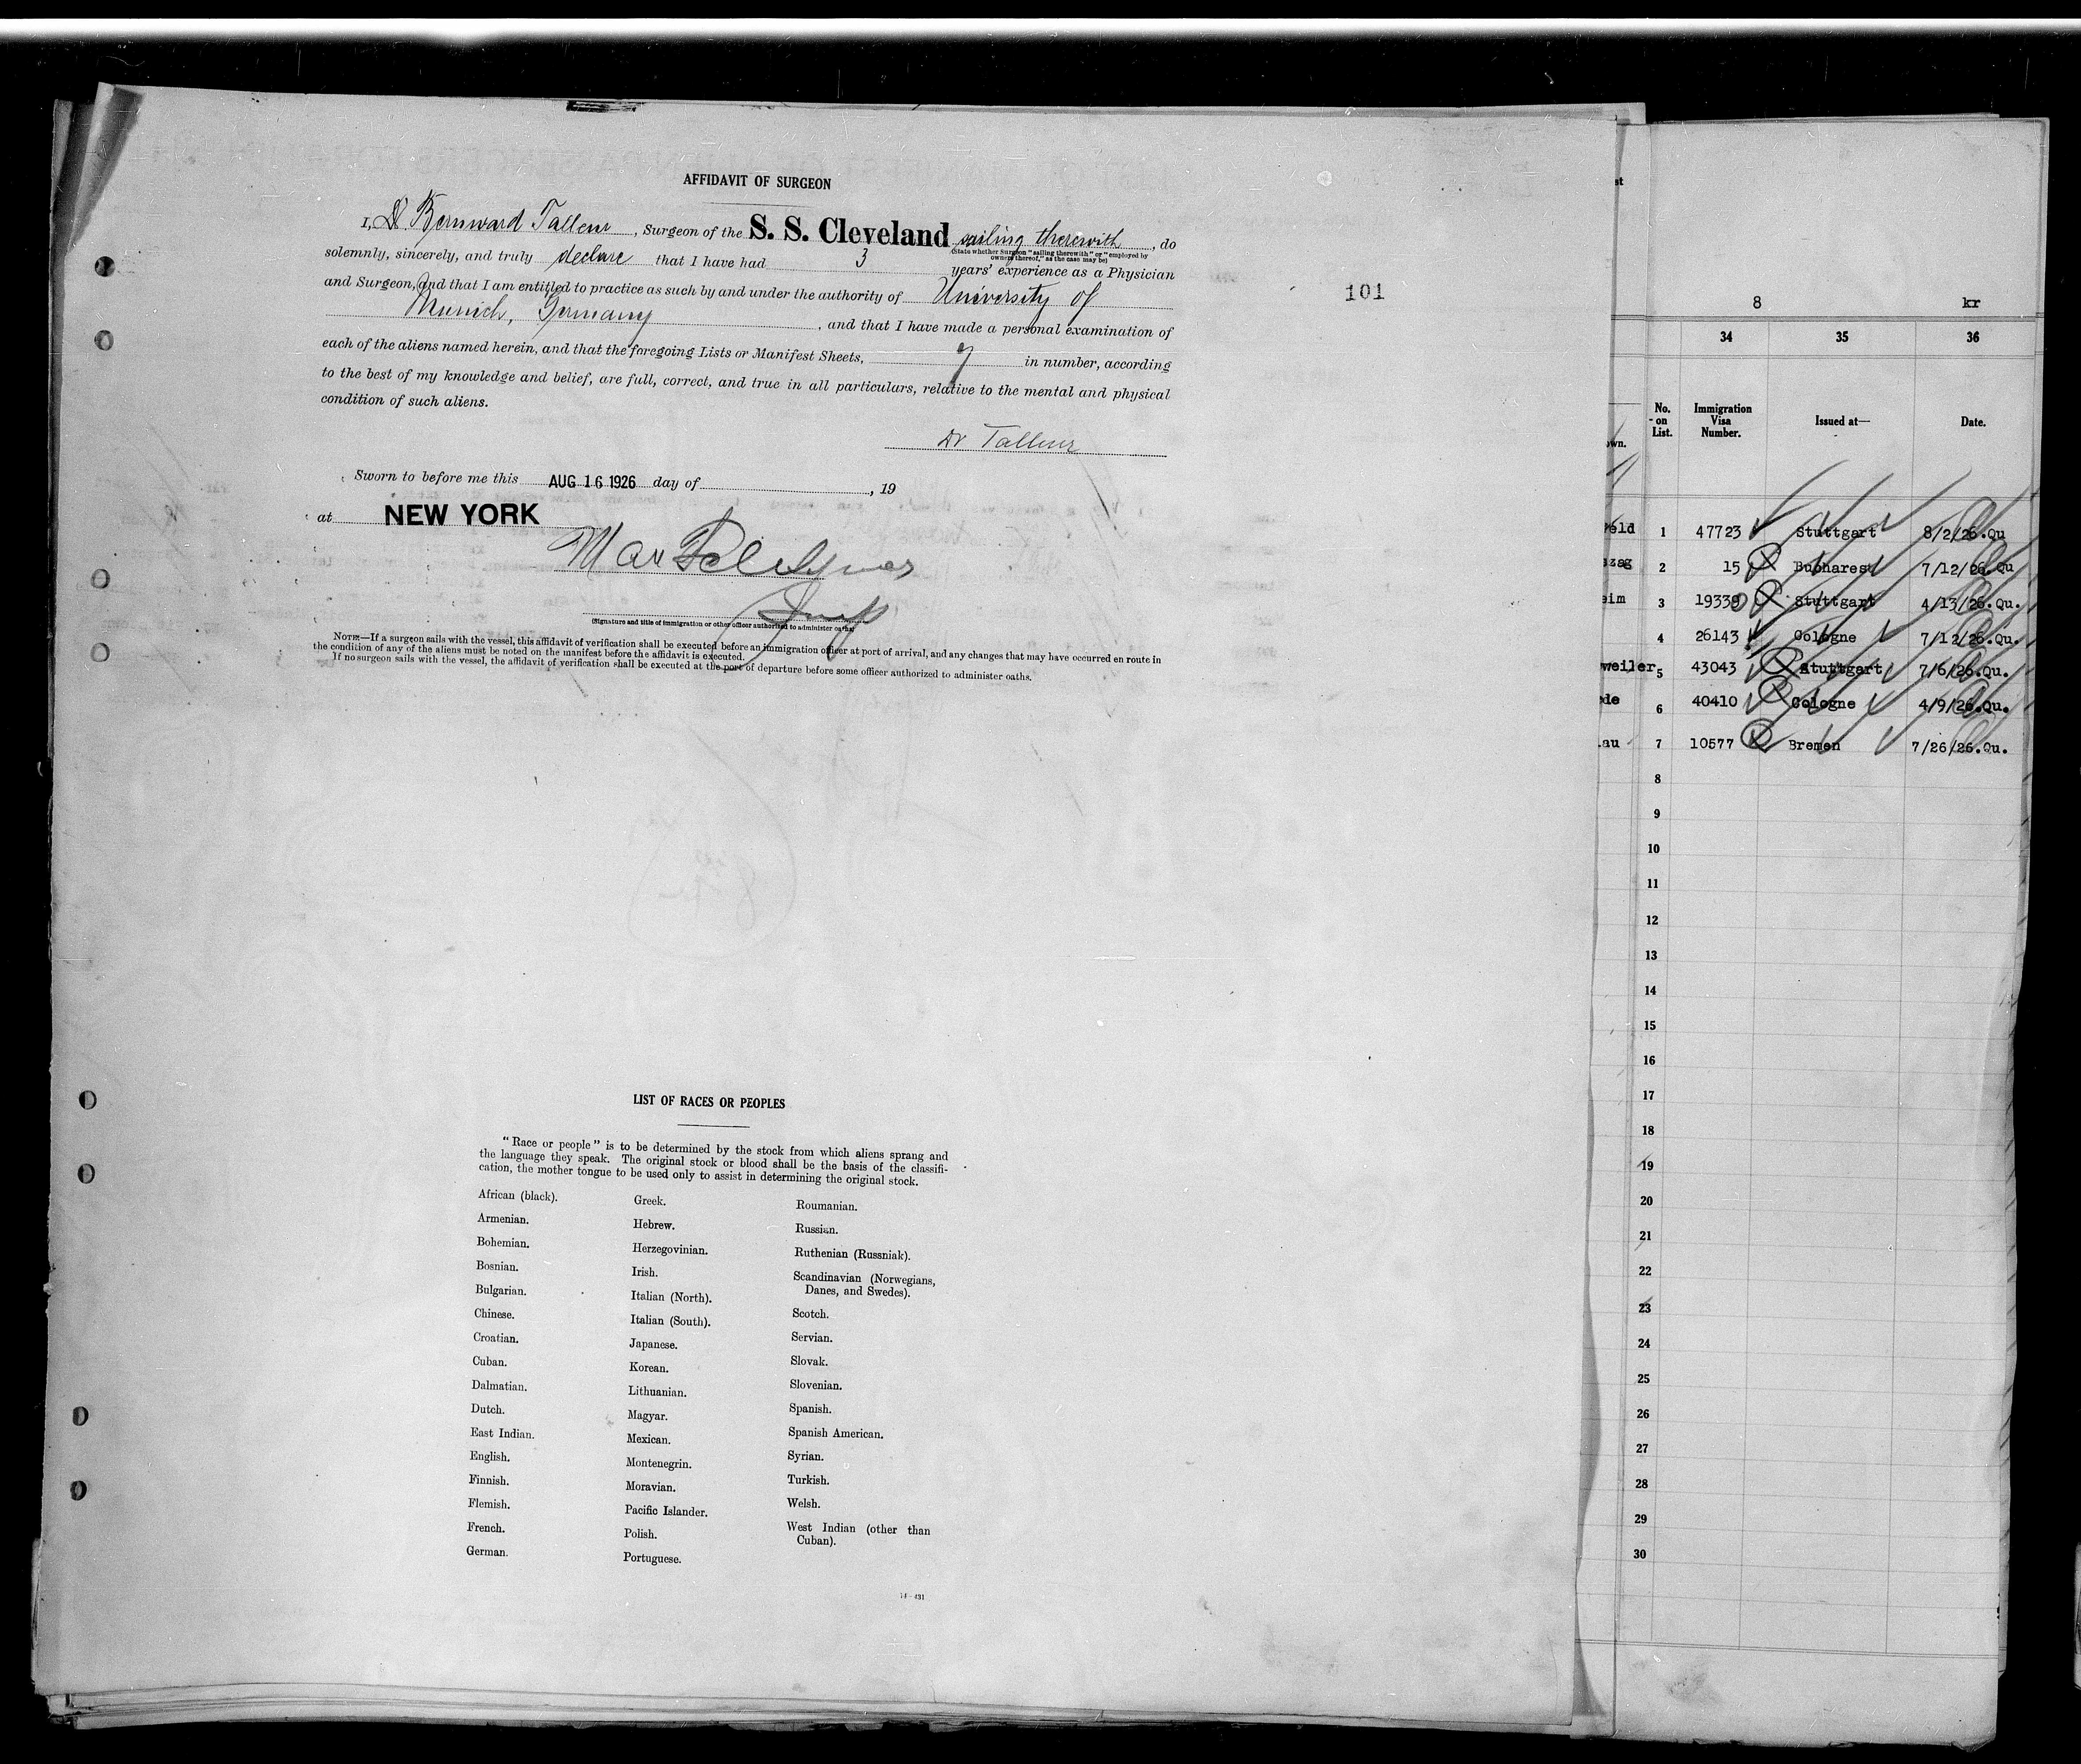 AFFIDAVIT OF SURGEON
I, Dr Bernward Tallen, Surgeon of the S. S. Cleveland sailing therewith, do
(State whether Surgeon "sailing therewith" or "employed by
owners thereof," as the case may be)
solemnly, sincerely, and truly declare that I have had 3 years' experience as a Physician
and Surgeon, and that I am entitled to practice as such by and under the authority of University of
Munich, Germany, and that I have made a personal examination of
each of the aliens named herein, and that the foregoing Lists or Manifest Sheets, 9 in number, according
to the best of my knowledge and belief, are full, correct, and true in all particulars, relative to the mental and physical
condition of such aliens.
Dr
Sworn to before me this AUG 16 1926 day of , 19
at NEW YORK
Max
(Signature and title of immigration or other officer authorized to administer oaths)
NOTE.—If a surgeon sails with the vessel, this affidavit of verification shall be executed before an immigration officer at port of arrival, and any changes that may have occurred en route in
the condition of any of the aliens must be noted on the manifest before the affidavit is executed.
If no surgeon sails with the vessel, the affidavit of verification shall be executed at the port of departure before some officer authorized to administer oaths.
101
LIST OF RACES OR PEOPLES
"Race or people" is to be determined by the stock from which aliens sprang and
the language they speak. The original stock or blood shall be the basis of the classifi-
cation, the mother tongue to be used only to assist in determining the original stock.
African (black).
Armenian.
Bohemian.
Bosnian.
Bulgarian.
Chinese.
Croatian.
Cuban.
Dalmatian.
Dutch.
East Indian.
English.
Finnish.
Flemish.
French.
German.
Greek.
Hebrew.
Herzegovinian.
Irish.
Italian (North).
Italian (South).
Japanese.
Korean.
Lithuanian.
Magyar.
Mexican.
Montenegrin.
Moravian.
Pacific Islander.
Polish.
Portuguese.
Roumanian.
Russian.
Ruthenian (Russniak).
Scandinavian (Norwegians,
Danes, and Swedes).
Scotch.
Servian.
Slovak.
Slovenian.
Spanish.
Spanish American.
Syrian.
Turkish.
Welsh.
West Indian (other than
Cuban).
14—431
st
8 kr
34 35 36
own. No. on List. Immigration Visa Number. Issued at— Date.
feld 1 47723 Stuttgart 8/2/26.Qu
szag 2 15 Bucharest 7/12/26.Qu
eim 3 19339 Stuttgart 4/13/26.Qu.
4 26143 Cologne 7/12/26.Qu.
weiler 5 43043 Stuttgart 7/6/26.Qu.
de 6 40410 Cologne 4/9/26.Qu.
au 7 10577 Bremen 7/26/26.Qu.
8
9
10
11
12
13
14
15
16
17
18
19
20
21
22
23
24
25
26
27
28
29
30